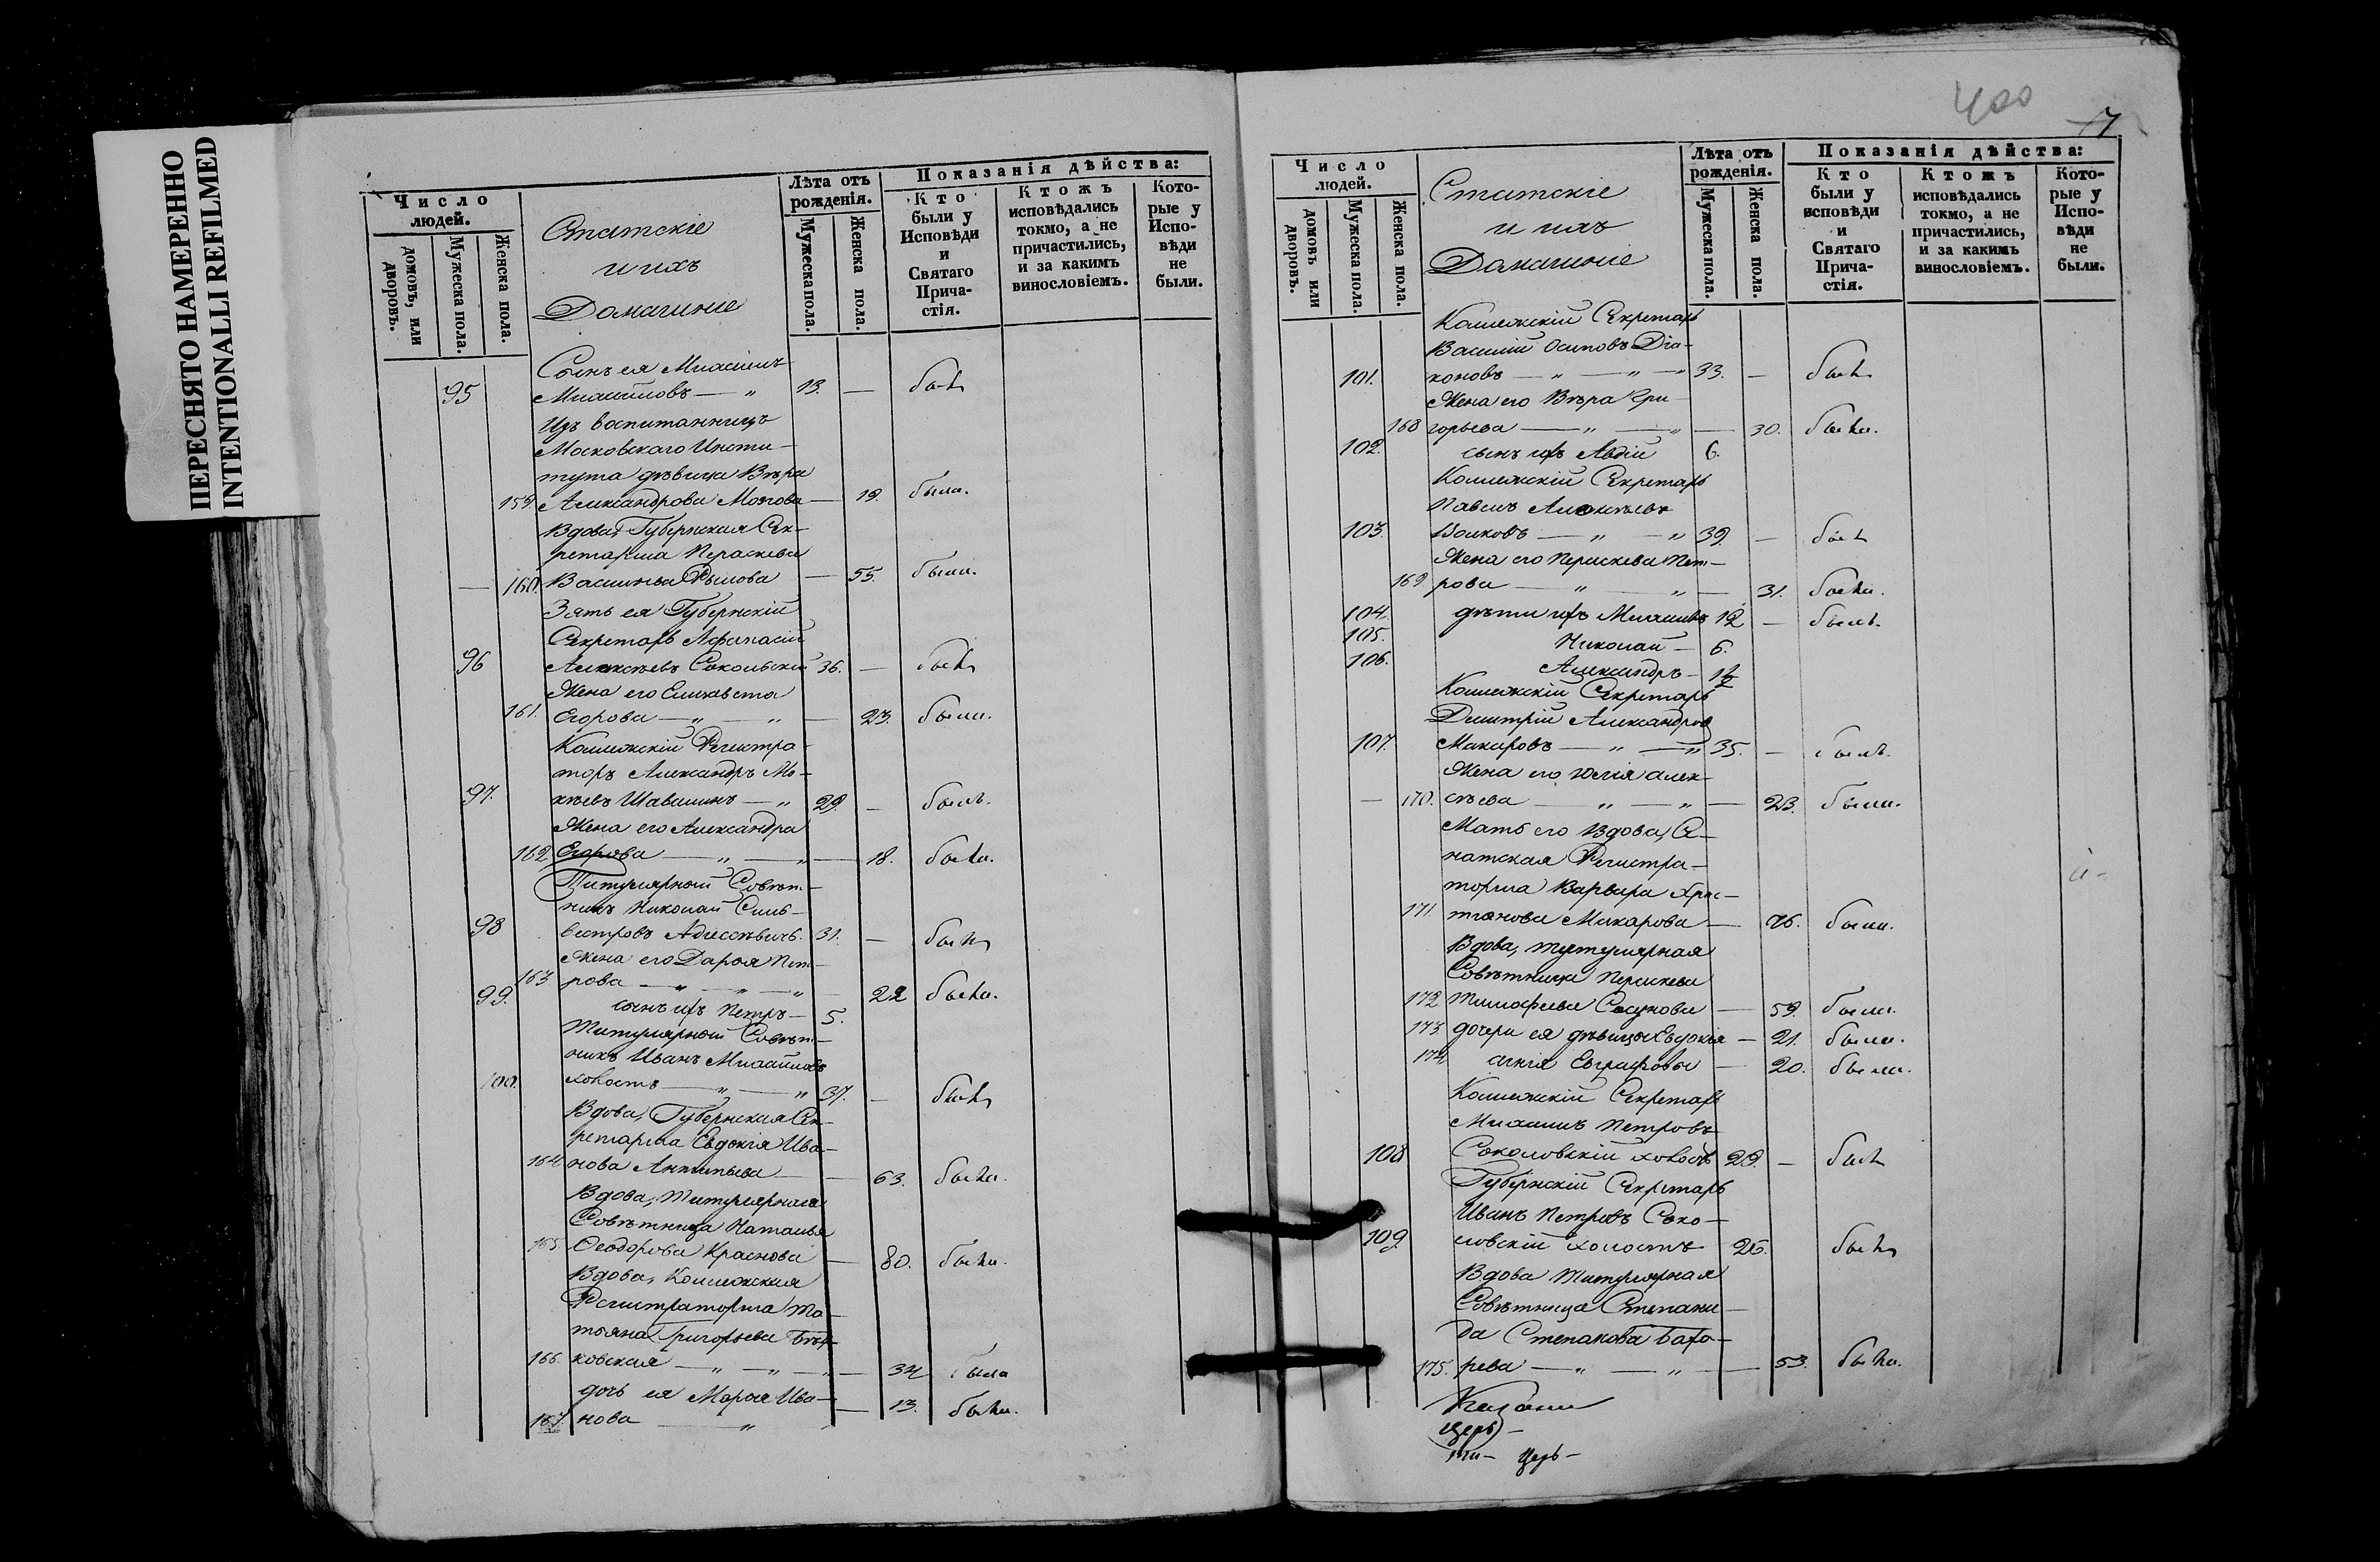 ПЕРЕСНЯТО НАМЕРЕННО
INTENTIONALLI REFILMED
Число людей.
домовъ, или дворовъ.
Мужеска пола.
Женска пола.
Статскіе
и ихъ
Домашніе
Лѣта отъ рожденія.
Мужеска пола.
Женска пола.
Показанія дѣйства:
Кто были у Исповѣди и Святаго Причастія.
Ктожъ исповѣдались токмо, а не причастились, и за какимъ винословіемъ.
Которые у Исповѣди не были.
Сынъ ея Михаилъ
95 Михайловъ — „ 13. — былъ
Изъ воспитанницъ
Московскаго Инсти-
тута дѣвица Вѣра
159. Александрова — 19. была.
Вдова, Губернская Сек-
ретарша Параскева
— 160. Васильева — 55. была.
Зять ея Губернскій
Секретарь Афанасій
96 Алексѣевъ Сокольскій 36. — былъ
Жена его Елисавета
161. Егорова — „ — „ — 23. была.
Коллежскій Регистра-
торъ Александръ
97. — „ 29. — былъ.
Жена его Александра
162 Егорова — „ — „ — 18. была.
Титулярный Совѣт-
никъ Николай Силь-
98 вестровъ 31. — былъ
Жена его Дарья Пет-
163 рова — „ — „ — „ 22 была.
99. сынъ ихъ Петръ — 5.
Титулярный Совѣт-
никъ Иванъ Михайловъ
100. холостъ — „ — „ 37. — былъ
Вдова, Губернская Сек-
ретарша Евдокія Ива-
164 нова Антипьева — 63. была.
Вдова, Титулярная
Совѣтница Наталья
165. Ѳеодорова Краснова — 80. была.
Вдова, Коллежская
Регистраторша Та-
тьяна Григорьева
166. ковская — „ — „ — „ — 34 была
дочь ея Марья Ива-
167. нова — „ — 13. была.
400
7
Число людей.
домовъ или дворовъ.
Мужеска пола.
Женска пола.
Статскіе
и ихъ
Домашніе
Лѣта отъ рожденія.
Мужеска пола.
Женска пола.
Показанія дѣйства:
Кто были у исповѣди и Святаго Причастія.
Ктожъ исповѣдались токмо, а не причастились, и за какимъ винословіемъ.
Которые у Исповѣди не были.
Коллежскій Секретарь
Василій Осиповъ Діа-
101. коновъ — „ — „ — „ 33. — былъ
Жена его Вѣра Гри-
168 горьева — „ — „ — 30. была.
102. сынъ ихъ Авдій 6.
Коллежскій Секретарь
Павелъ Алексѣевъ
103. Волковъ — „ — „ 39. — былъ
Жена его Параскева Пет-
169 рова — „ — „ — 31. была.
104. дѣти ихъ Михаилъ 12 — былъ.
105. Николай — 6.
106. Александръ — 1½
Коллежскій Секретарь
Дмитрій Александровъ
107. Макаровъ — „ — „ 35. — былъ.
Жена его Юлія Алек-
— 170. сѣева — „ — „ — 23. была.
Мать его вдова, Се-
натская Регистра-
торша Варвара Хрис-
171. тіанова Макарова — 76. была.
Вдова, титулярная
Совѣтница Параскева
172 Тимофеева — 59. была.
173. дочери ея дѣвицы Евдокія — 21. была.
174. Агнія Евграфовы — 20. была.
Коллежскій Секретарь
Михаилъ Петровъ
108 Соколовскій холостъ 29. — былъ
Губернскій Секретарь
Иванъ Петровъ Соко-
109. ловскій холостъ 26. былъ
Вдова Титулярная
Совѣтница Степани-
да Степанова
175. рева — „ — „ — 53. была.